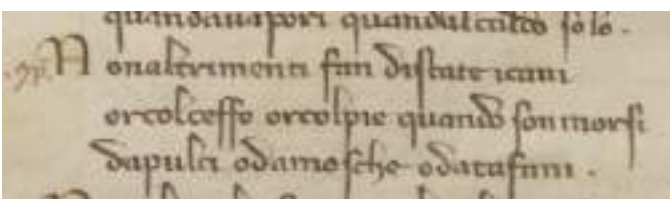 quando a uapori quando al caldo solo.
N onaltrimenti fan distate icani
orcolceffo orcolpie quando son morsi
dapulci odamosche odatafani.